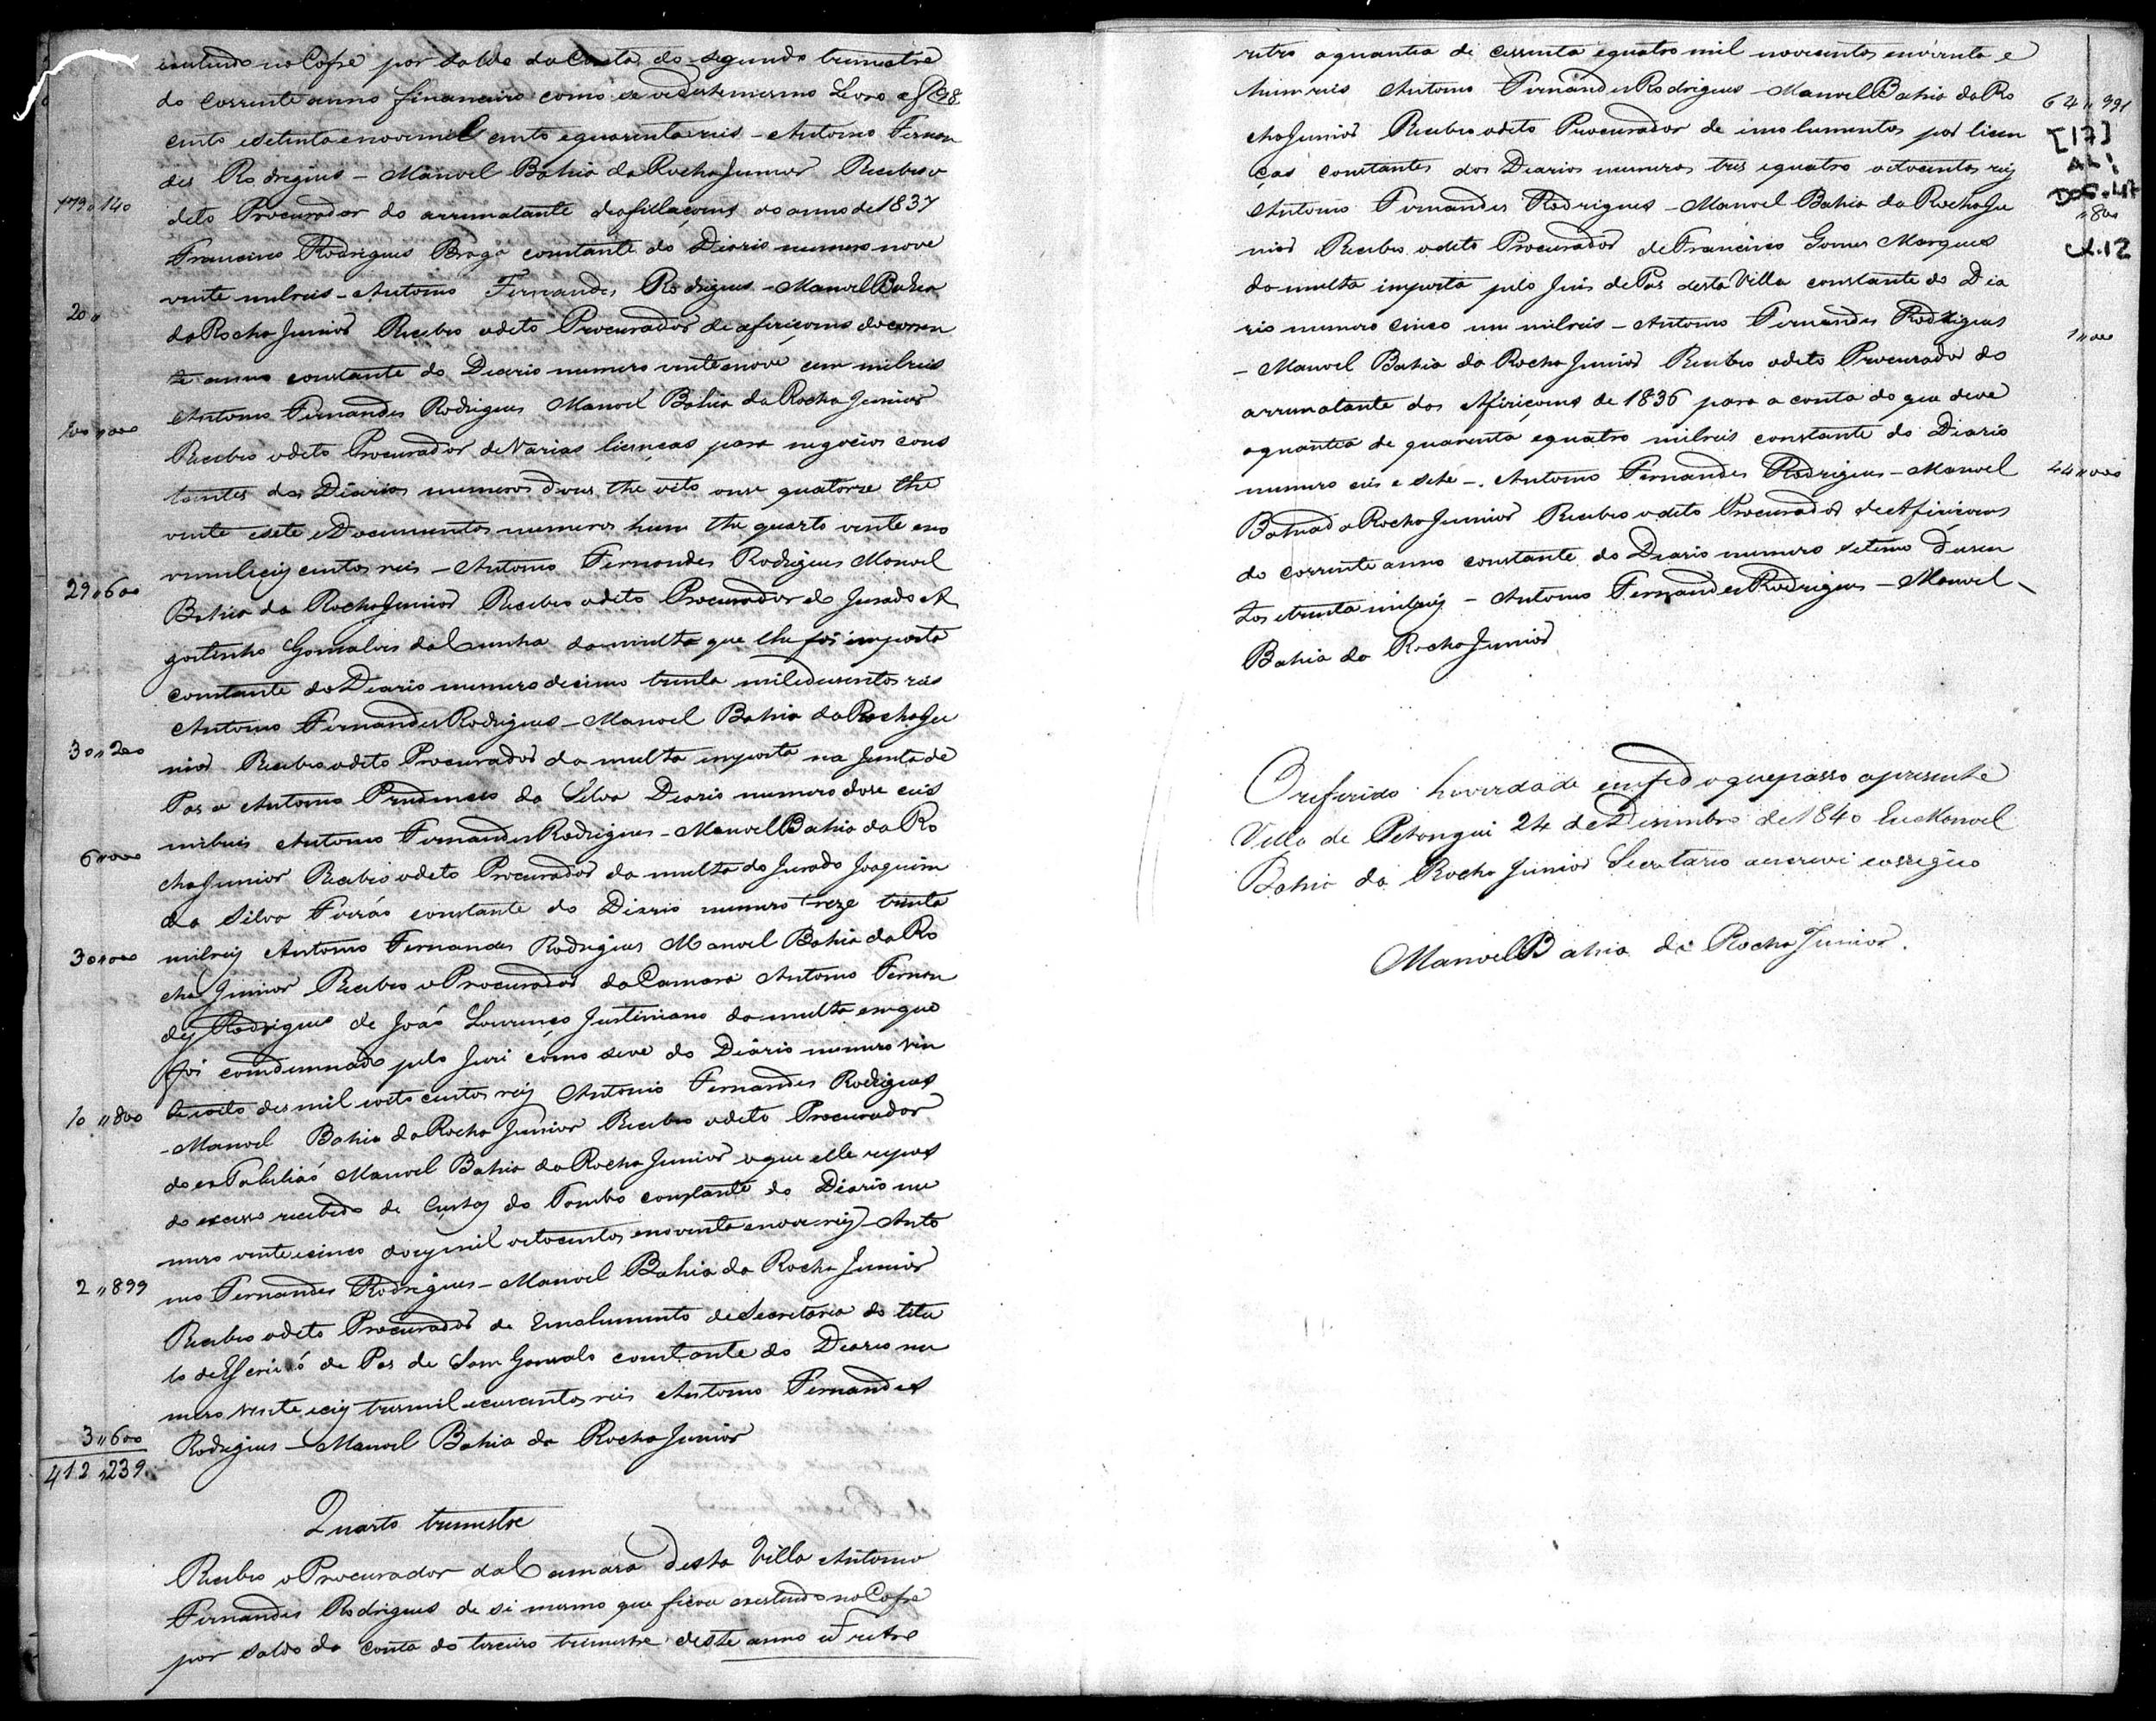 existindo no Cofre por saldo da Conta do segundo trimestre
do corrente anno financeiro como se vê deste mesmo Livro a f 98
cento e setenta e nove mil cento e quarenta reis - Antonio Fernan
des Rodrigues - Manoel Bahia da Rocha Junior Recebeo o
179 " 140 dito Procurador do arrematante de afillaçoens do anno de 1837
Francisco Rodrigues Braga constante do Diario numero nove
vinte mil reis - Antonio Fernandes Rodrigues - Manoel Bahia
20 " da Rocha Junior Recebeo o dito Procurador de afiriçoens do corren
te anno constante do Diario numero vinte e nove cem mil reis
100 " 000 Antonio Fernandes Rodrigues Manoel Bahia da Rocha Junior
Recebeo o dito Procurador de Varias licenças para negocios cons
tantes dos Diarios numeros dous the oito onze quatorze the
vinte e sete e Documentos numeros hum the quarto vinte e no
ve mil e seis centos reis - Antonio Fernandes Rodrigues Manoel
29 " 600 Bahia da Rocha Junior Recebeo o dito Procurador do Jurado A
gostinho Gonsalves da Cunha da multa que lhe foi imposta
constante do Diario numero decimo trinta mil e duzentos reis
Antonio Fernandes Rodrigues - Manoel Bahia da Rocha Ju
30 " 200 nior Recebeo o dito Procurador da multa imposta na Junta de
Pas a Antonio Prudencio da Silva Diario numero doze seis
mil reis Antonio Fernandes Rodrigues - Manoel Bahia da Ro
6 " 000 cha Junior Recebeo o dito Procurador da multa do Jurado Joaquim
da Silva constante do Diario numero treze trinta
30 " 000 mil reis Antonio Fernandes Rodrigues Manoel Bahia da Ro
cha Junior Recebeo o Procurador da Camara Antonio Fernan
des Rodrigues de João Lourenço Justiniano da multa em que
foi comdemnado pelo Juri como se ve do Diario numero vin
10 " 800 te e oito des mil e oito centos reis Antonio Fernandes Rodrigues
- Manoel Bahia da Rocha Junior Recebeo o dito Procurador
do ex Tabeliaõ Manoel Bahia da Rocha Junior o que elle repos
do excesso recebido de Custas do Tombo constante do Diario nu
mero vinte e cinco dois mil oitocentos e noventa e nove reis - Anto
2 " 899 nio Fernandes Rodrigues - Manoel Bahia da Rocha Junior
Recebeo o dito Procurador de Emolumento de Secretaria do titu
lo de Escrivaõ de Pas de Sam Gonsalo constante do Diario nu
mero vinte e seis tres mil e seiscentos reis Antonio Fernandes
3 " 600 Rodrigues - Manoel Bahia da Rocha Junior
412 " 239
Quarto trimestre
Recebeo o Procurador da Camara desta Villa Antonio
Fernandes Rodrigues de si mesmo que ficou existindo no Cofre
por saldo da conta do terceiro trimestre deste anno ut retro
retro a quantia de cessenta e quatro mil novecentos e noventa e
hum reis Antonio Fernandes Rodrigues - Manoel Bahia da Ro 64 " 991
cha Junior Recebeo o dito Procurador de imolumentos por licen [17]
ças constantes dos Diarios numeros tres e quatro oitocentos reis AL!
Antonio Fernandes Rodrigues - Manoel Bahia da Rocha Ju DOS. 47 " 800
nior Recebeo o dito Procurador de Francisco Gomes Marques CX.12
da multa imposta pelo Juis de Pas desta Villa constante do Dia
rio numero cinco um mil reis - Antonio Fernandes Rodrigues 1 " 000
- Manoel Bahia da Rocha Junior Recebeo o dito Procurador do
arrematante das Afiriçoens de 1836 para a conta do que deve
a quantia de quarenta e quatro mil reis constante do Diario
numero seis e sete - Antonio Fernandes Rodrigues - Manoel 44 " 000
Bahia da Rocha Junior Recebeo o dito Procurador de Afiriçoens
do corrente anno constante do Diario numero setimo duzen
tos e trinta mil reis - Antonio Fernandes Rodrigues - Manoel
Bahia da Rocha Junior
O referido he verdade em fé do que passo a presente
Villa de Pitangui 24 de Desembro de 1840 Eu Manoel
Bahia da Rocha Junior Secretario a escrevi e assigno
Manoel Bahia da Rocha Junior.